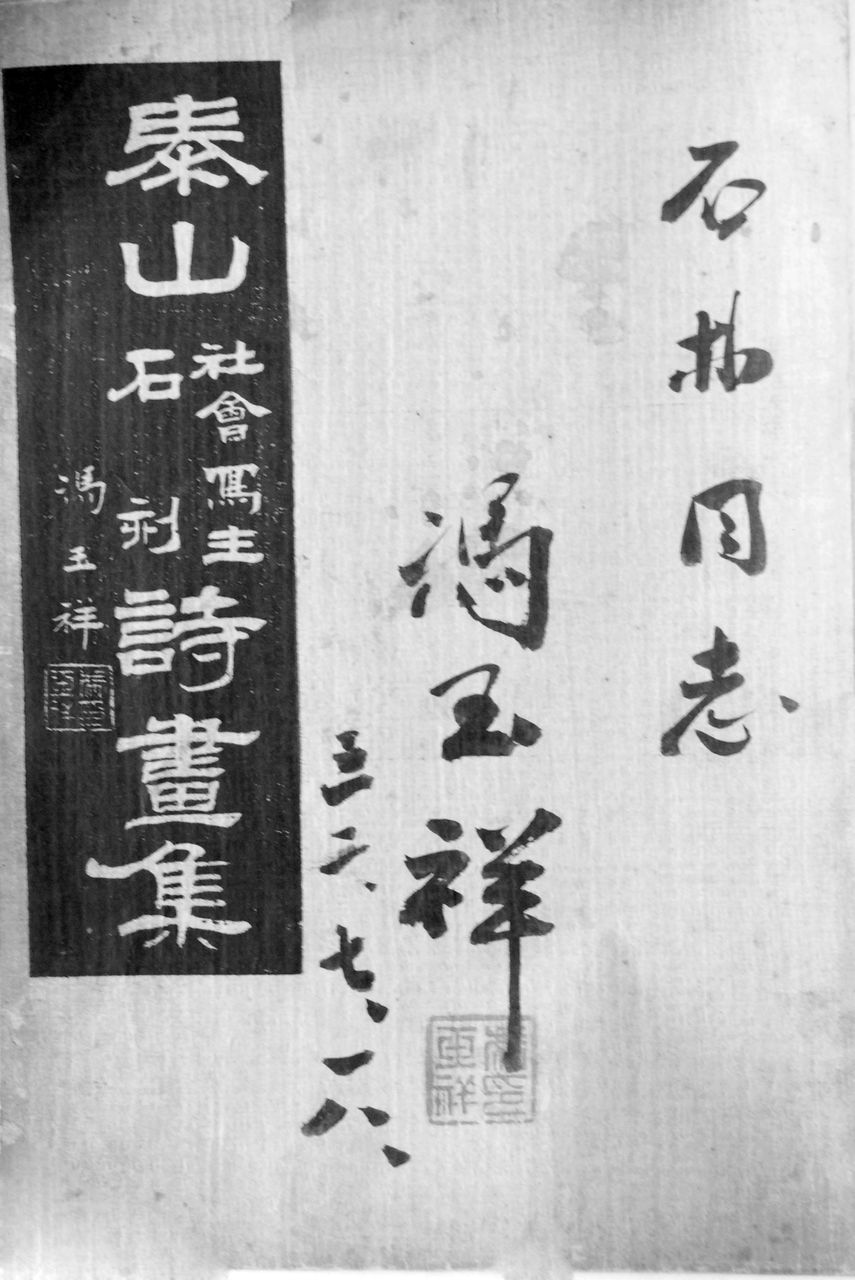 石 同志
馮玉祥
馮玉祥印
三二、七、一八、
泰山石刻詩畫集
社會寫生
馮玉祥